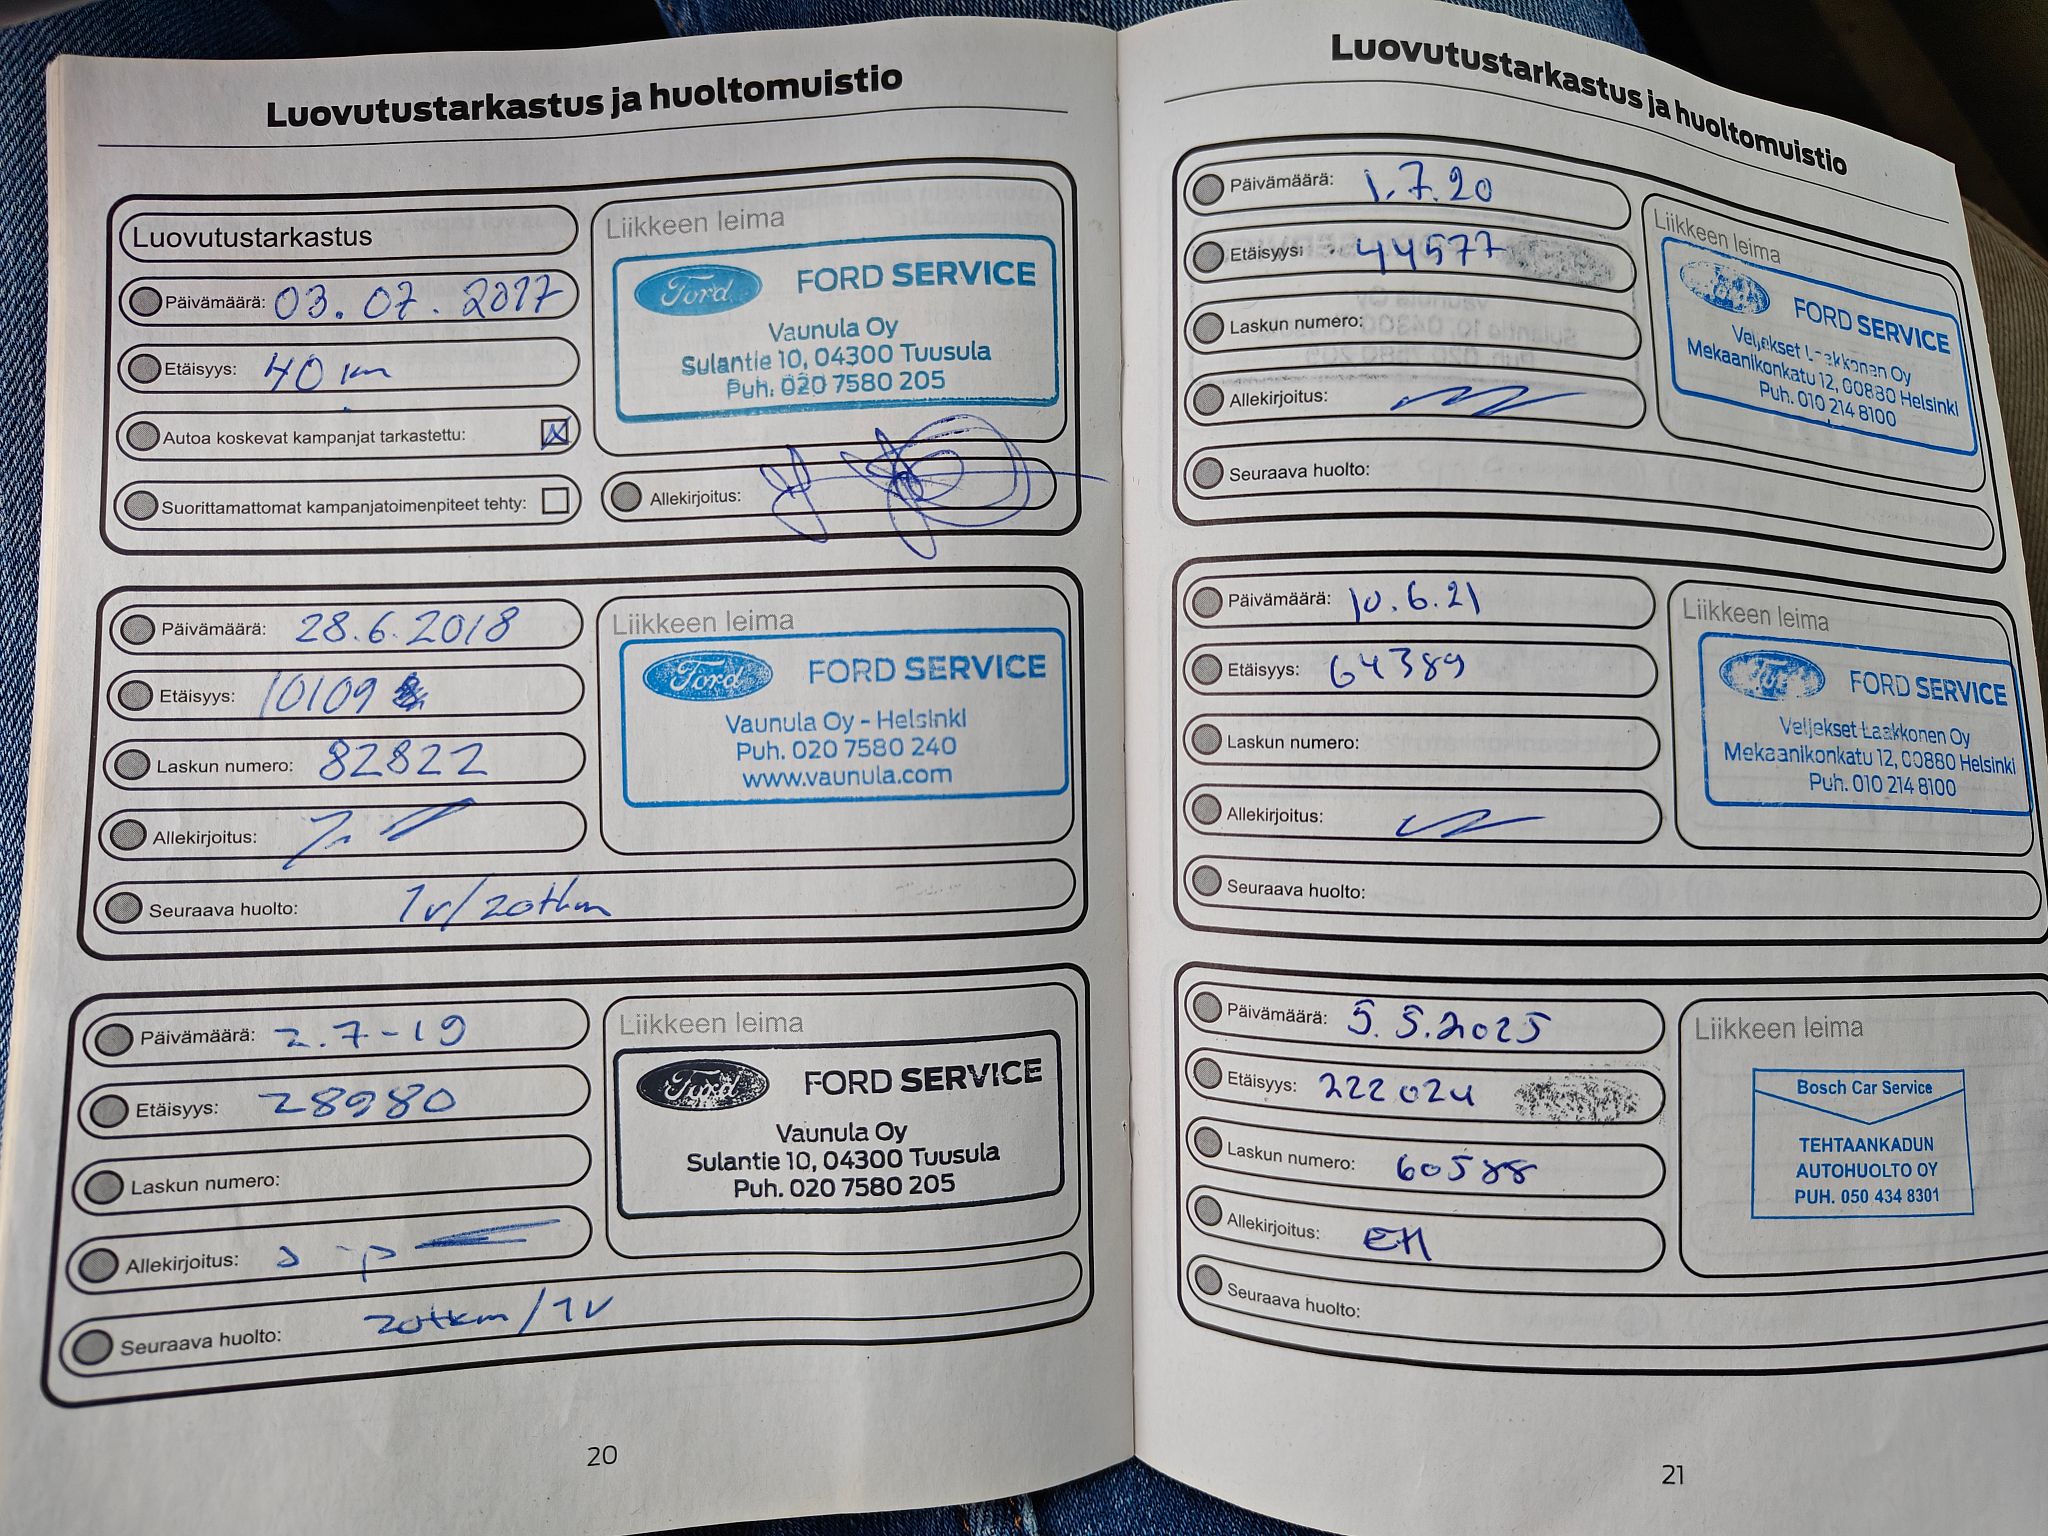 Luovutustarkastus ja huoltomuistio
Luovutustarkastus
Päivämäärä: 03.07.2017
Etäisyys: 40 km
Autoa koskevat kampanjat tarkastettu:
Suorittamattomat kampanjatoimenpiteet tehty:
Liikkeen leima
Ford FORD SERVICE
Vaunula Oy
Sulantie 10, 04300 Tuusula
Puh. 020 7580 205
Allekirjoitus:
Päivämäärä: 28.6.2018
Etäisyys: 10109
Laskun numero: 82822
Allekirjoitus:
Seuraava huolto: 1v/20tkm
Liikkeen leima
Ford FORD SERVICE
Vaunula Oy - Helsinki
Puh. 020 7580 240
www.vaunula.com
Päivämäärä: 2.7-19
Etäisyys: 28980
Laskun numero:
Allekirjoitus:
Seuraava huolto: 20tkm/1v
Liikkeen leima
Ford FORD SERVICE
Vaunula Oy
Sulantie 10, 04300 Tuusula
Puh. 020 7580 205
20
Luovutustarkastus ja huoltomuistio
Päivämäärä: 1.7.20
Etäisyys: 44577
Laskun numero:
Allekirjoitus:
Seuraava huolto:
Liikkeen leima
Ford FORD SERVICE
Veljekset Laakkonen Oy
Mekaanikonkatu 12, 00880 Helsinki
Puh. 010 214 8100
Päivämäärä: 10.6.21
Etäisyys: 64389
Laskun numero:
Allekirjoitus:
Seuraava huolto:
Liikkeen leima
Ford FORD SERVICE
Veljekset Laakkonen Oy
Mekaanikonkatu 12, 00880 Helsinki
Puh. 010 214 8100
Päivämäärä: 5.5.2025
Etäisyys: 222024
Laskun numero: 60588
Allekirjoitus: EH
Seuraava huolto:
Liikkeen leima
Bosch Car Service
TEHTAANKADUN
AUTOHUOLTO OY
PUH. 050 434 8301
21